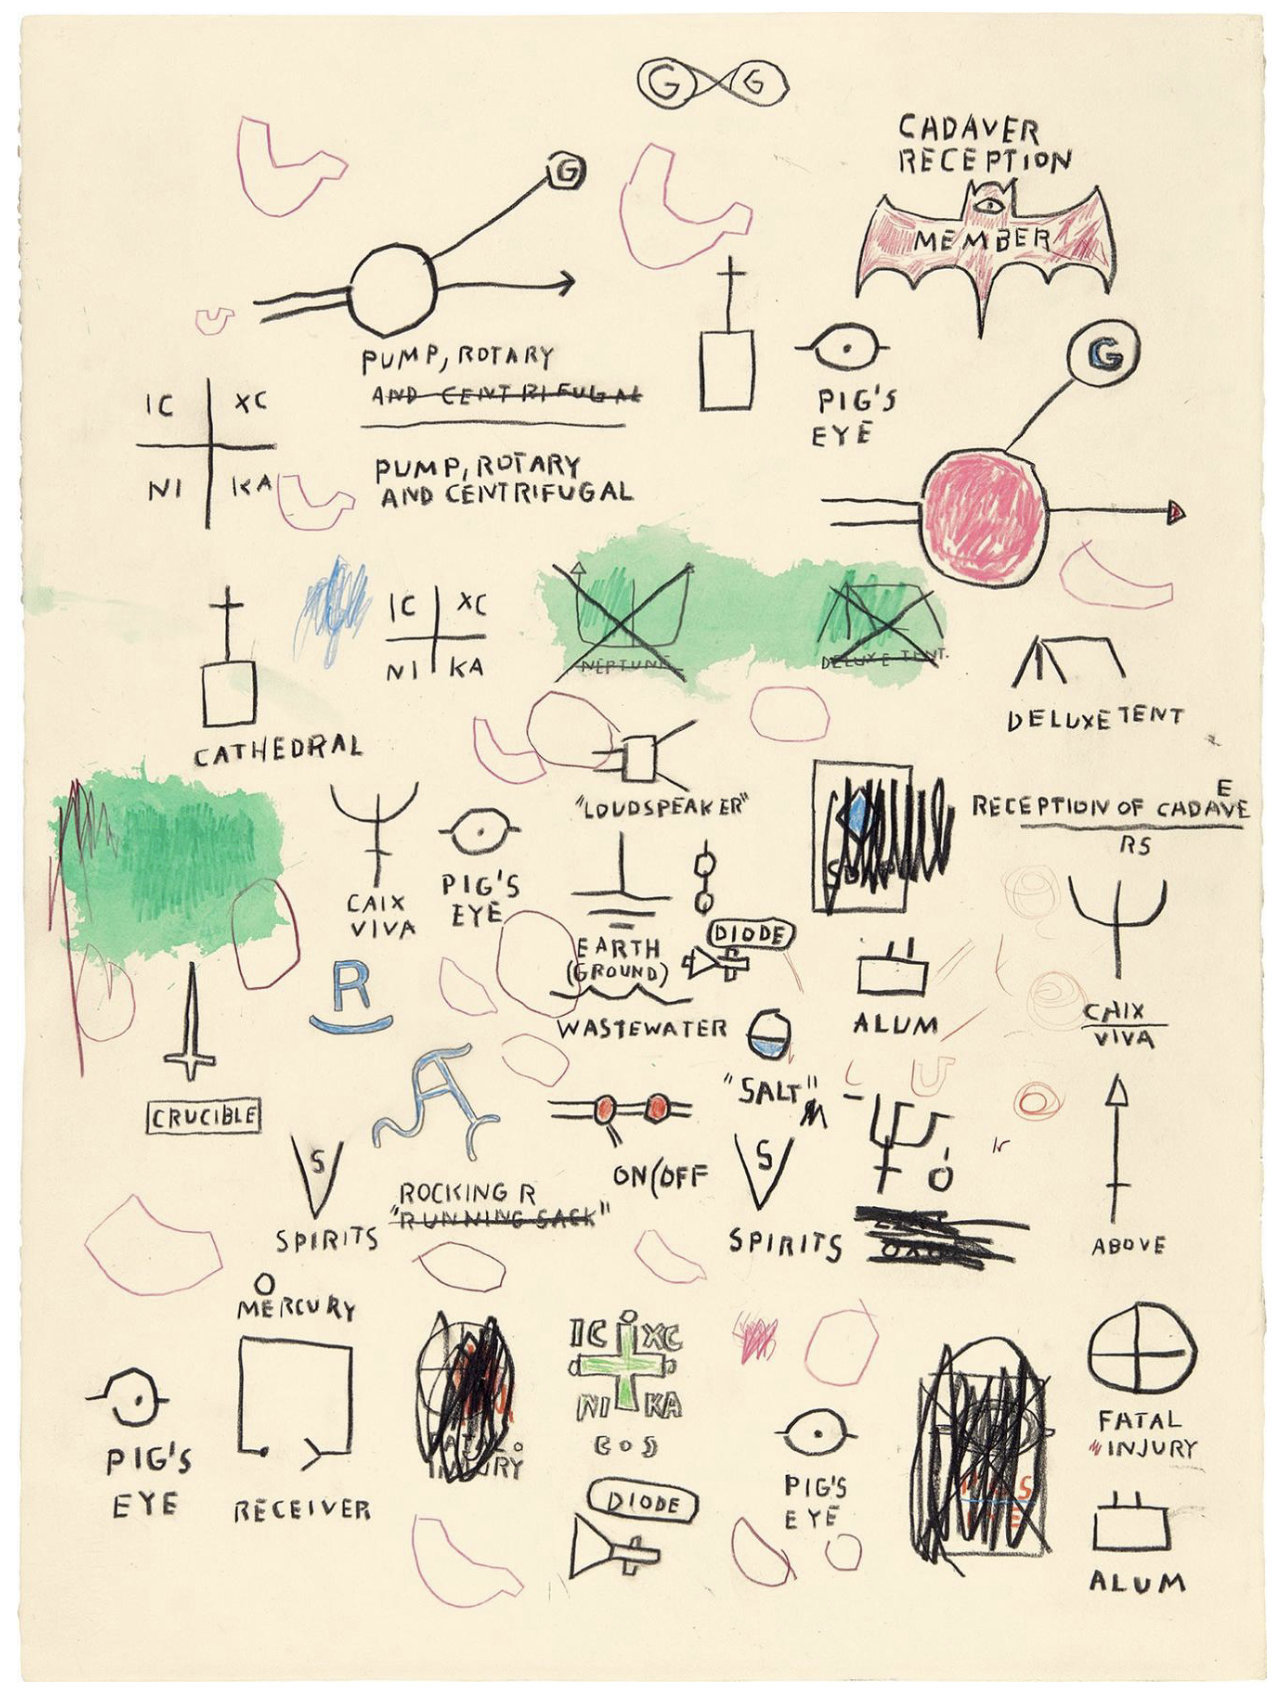 G G
CADAVER
RECEPTION
MEMBER
G
PUMP, ROTARY
AND CENTRIFUGAL
PUMP, ROTARY
AND CENTRIFUGAL
PIG'S
EYE
G
IC XC
NI KA
IC XC
NI KA
NEPTUNE
DELUXE TENT.
DELUXE TENT
CATHEDRAL
"LOUDSPEAKER"
E
RECEPTION OF CADAVE
RS
CAIX
VIVA
PIG'S
EYE
EARTH
(GROUND)
DIODE
WASTEWATER
ALUM
CHIX
VIVA
R
"SALT"
CRUCIBLE
A
S
SPIRITS
ROCKING R
"RUNNING SACK"
ON(OFF
S
SPIRITS
ABOVE
MERCURY
PIG'S
EYE
RECEIVER
INJURY
IC XC
NI KA
DIODE
PIG'S
EYE
FATAL
"INJURY
ALUM